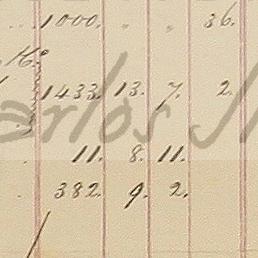 1000. " " 36.
1433 13. 7. 2.
arlos J
11. 8. 11.
382. 9. 2.